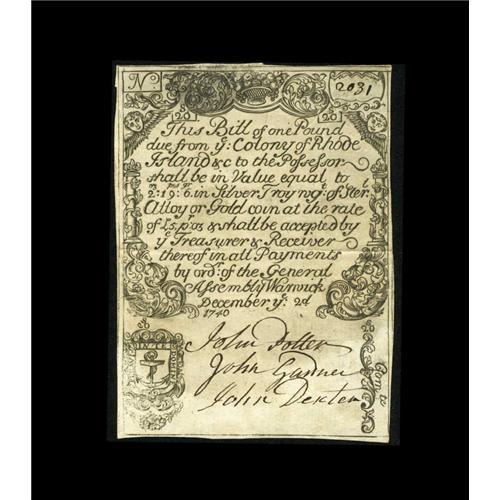 No 2031
20 20
This Bill of one Pound
due from ye: Colony of Rhode
Island &c to the Possessor
shall be in Value equal to
2:19:6. in Silver Troy wgt of Ster
Alloy or Gold coin at the rate
shall be accepted by
ye Treasurer & Receiver
thereof in all Payments
by ordr. of the General
Assembly Warwick
December ye 2d
1740
John Potter
John Gardner
John Dexter